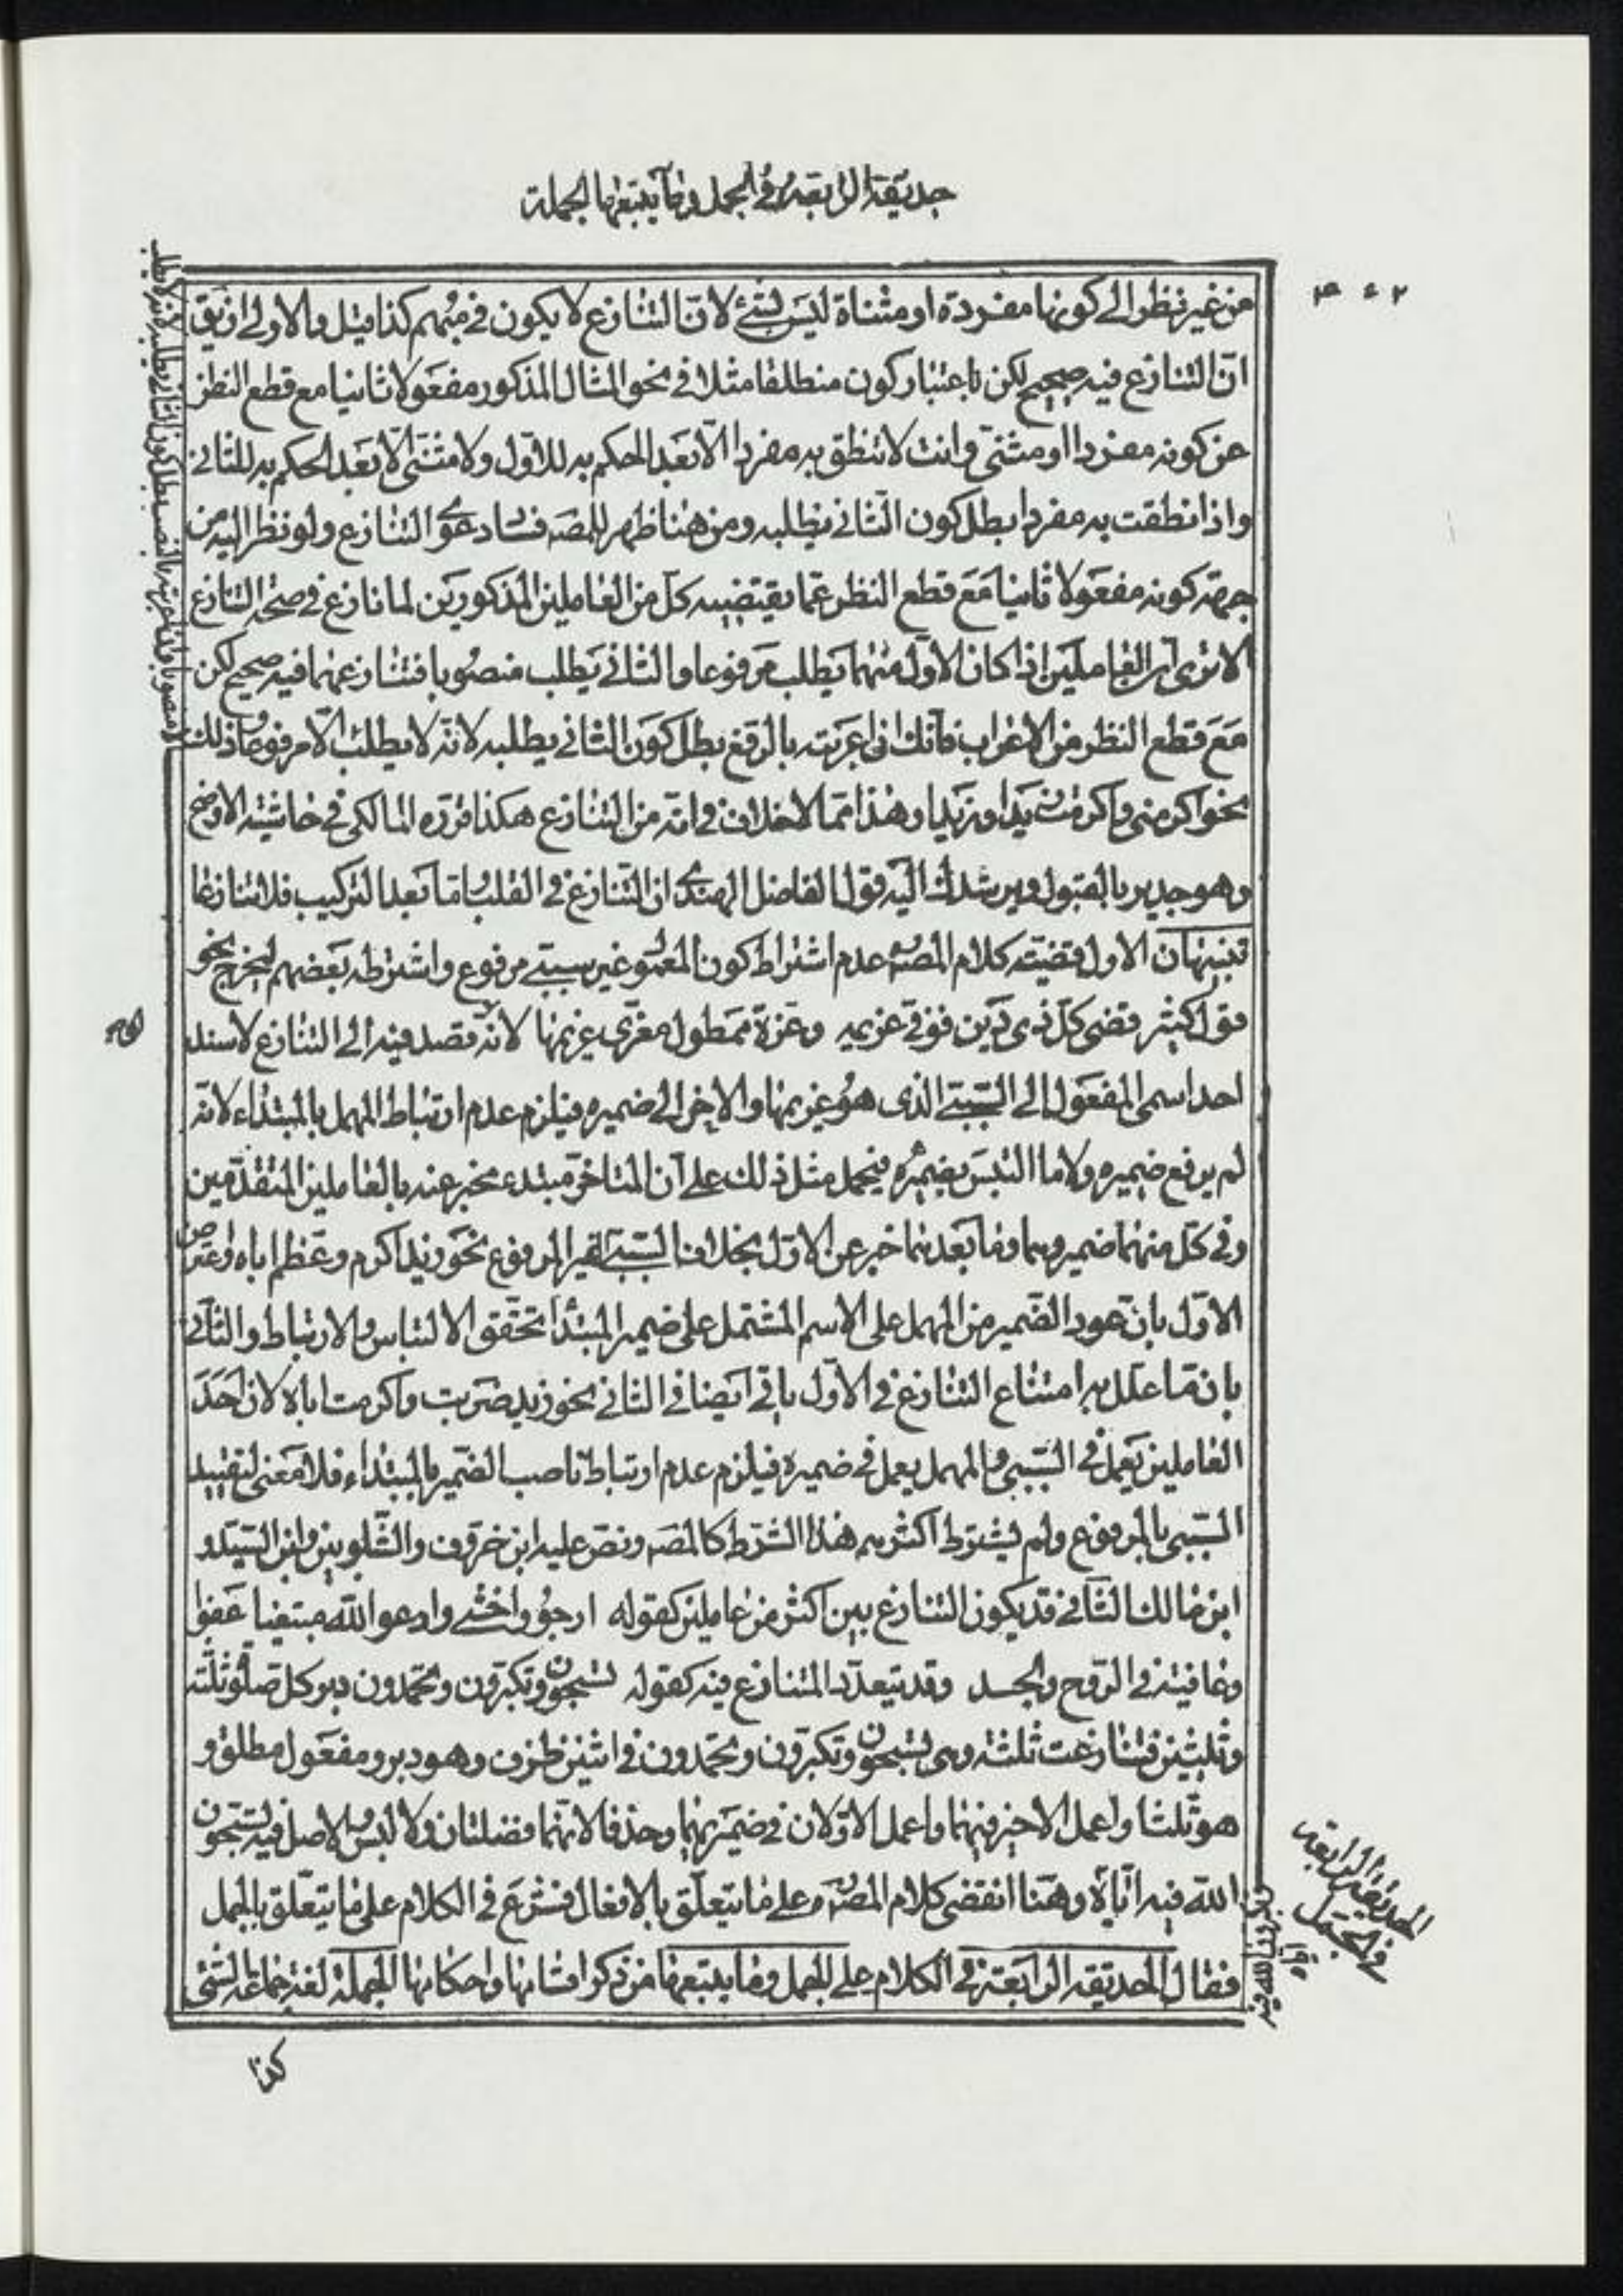 حديقة الرابعة في الجمل وما يتبعها الجملة
٣٠٢
من غير نظر الى كونها مفردة او مثناة ليس بشئ لان التنازع لا يكون في مبهم كذا قيل والاولى ان يق
ان التنازع فيه صحيح لكن باعتبار كون منطلقا مثلا في نحو المثال المذكور مفعولا ثانيا مع قطع النظر
عن كونه مفردا او مثنى وانت لا تنطق به مفردا الا بعد الحكم به للاول ولا مثنى الا بعد الحكم به للثاني
واذا نطقت به مفردا بطل كون الثاني يطلبه ومن هنا ظهر للمصه فساد دعوى التنازع ولو نظر اليه من
جهة كونه مفعولا ثانيا مع قطع النظر عما يقتضيه كل من العاملين المذكورين لما نازع في صحة التنازع
الا ترى ان العاملين اذا كان الاول منهما يطلب مرفوعا والثاني يطلب منصوبا فتنازعهما فيه صحيح لكن
مع قطع النظر من الاعراب فانك ان اعربته بالرفع بطل كون الثاني يطلبه لانه لا يطلب الا مرفوعا وذلك
نحو اكرمني واكرمت زيدا وزيد وهذا مما لا خلاف في انه من التنازع هكذا قرره المالكي في حاشية الاوضح
وهو جدير بالقبول ويرشدك اليه قول الفاضل الهندى ان التنازع في القلب واما بعد التركيب فلا تنازعا
تنبيهان الاول قضية كلام المصه عدم اشتراط كون المعمول غير سببي مرفوع واشترطه بعضهم ليخرج نحو
قول كثير قضى كل ذى دين فوفى غريمه وعزة ممطول معنى غريمها لانه قصد فيه الى التنازع لاسند
احد اسمي المفعول الى السببي الذى هو غريمها والاخر الى ضميره فيلزم عدم ارتباط المهمل بالمبتداء لانه
لم يرفع ضميره ولا ما التبس بضميره فيحمل مثل ذلك على ان المتاخر مبتدء مخبر عنه بالعاملين المتقدمين
وفي كل منهما ضمير وهما وما بعدهما خبر عن الاول بخلاف السببي الغير المرفوع نحو زيد اكرم وعظم اباه واعترض
الاول بان عود الضمير من المهمل على الاسم المشتمل على ضمير المبتدا تحقق الالتباس والارتباط والثاني
بان ما علل به امتناع التنازع في الاول باقي ايضا في الثاني نحو زيد ضربت واكرمت اباه لان احد
العاملين يعمل في السببي والمهمل يعمل في ضميره فيلزم عدم ارتباط ناصب الضمير بالمبتداء فلا معنى لتقييد
السببي بالمرفوع ولم يشترط اكثرهم هذا الشرط كالمصه ونص عليه ابن خروف والشلوبين وابن السيد و
ابن مالك الثاني قد يكون التنازع بين اكثر من عاملين كقوله ارجو واخشى وادعو الله مبتغيا عفوا
وعافية في الروح والجسد وقد يتعدد المتنازع فيه كقوله تسبحون وتكبرون وتحمدون دبر كل صلوة ثلثه
وثلثين فتنازعت ثلثة وهي تسبحون وتكبرون وتحمدون في اثنين ظرف وهو دبر ومفعول مطلق و
هو ثلثا واعمل الاخير فيهما واعمل الاولان في ضميريهما وحذفا لانهما فضلتان ولا لبس والاصل فيه تسبحون
الله فيه اياه وهنا انقضى كلام المصه على ما يتعلق بالافعال فشرع في الكلام على ما يتعلق بالجمل
فقال الحديقة الرابعة في الكلام على الجمل وما يتبعها من ذكر اقسامها واحكامها الجملة لغة جماعة الشئ
الحديقة الرابعة
في الجمل